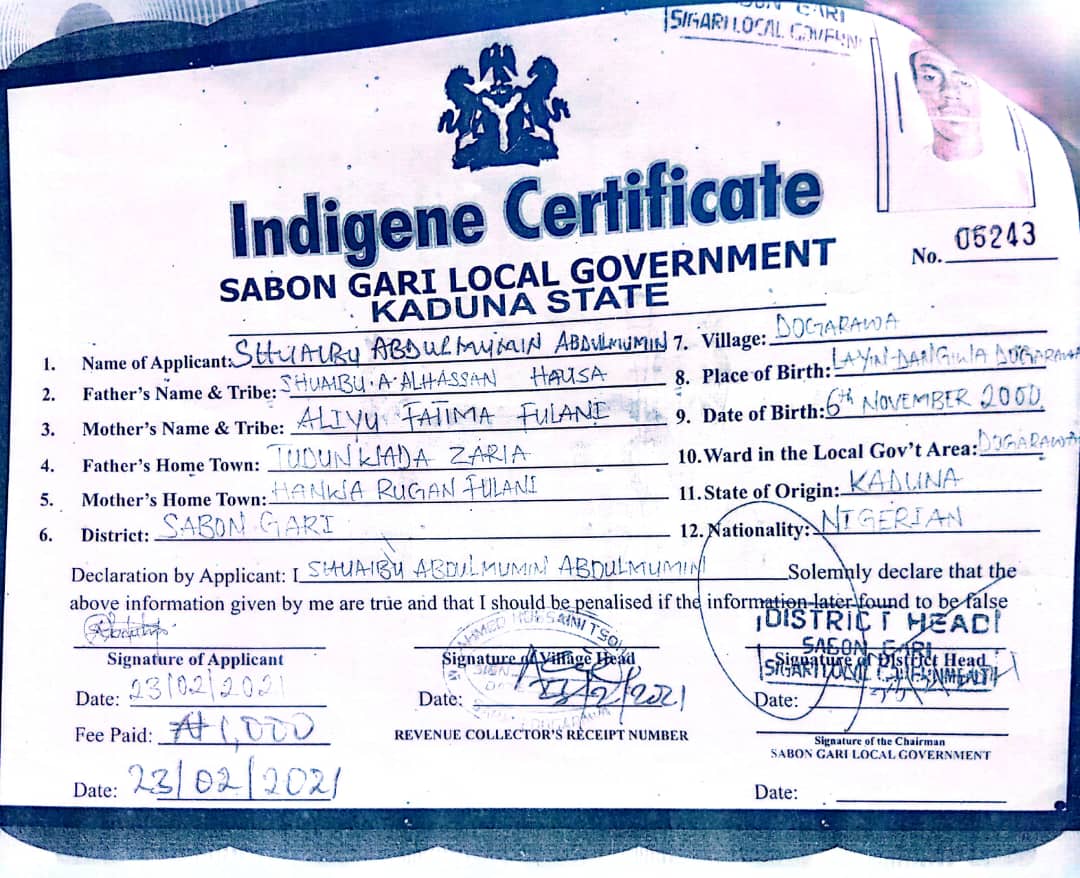 SABON GARI
SIGARI LOCAL GOVERN
Indigene Certificate
SABON GARI LOCAL GOVERNMENT
KADUNA STATE
No. 05243
1. Name of Applicant: SHUAIBU ABDULMUMIN ABDULMUMIN
2. Father's Name & Tribe: SHUAIBU·A·ALHASSAN HAUSA
3. Mother's Name & Tribe: ALIYU FATIMA FULANI
4. Father's Home Town: TUDUN WADA ZARIA
5. Mother's Home Town: HANWA RUGAN FULANI
6. District: SABON GARI
7. Village: DOGARAWA
8. Place of Birth: LAYIN-DANGIWA DOGARAWA
9. Date of Birth: 6th NOVEMBER 2000
10. Ward in the Local Gov't Area: DOGARAWA
11. State of Origin: KADUNA
12. Nationality: NIGERIAN
Declaration by Applicant: I SHUAIBU ABDULMUMIN ABDULMUMIN Solemnly declare that the
above information given by me are true and that I should be penalised if the information later found to be false
Signature of Applicant
Date: 23/02/2021
Fee Paid: ₦1,000
Date: 23/02/2021
AHMED HUSSAINI
Signature of Village Head
Date: 23/2/2021
REVENUE COLLECTOR'S RECEIPT NUMBER
DISTRICT HEAD
SABON GARI
Signature of District Head
Date:
Signature of the Chairman
SABON GARI LOCAL GOVERNMENT
Date: